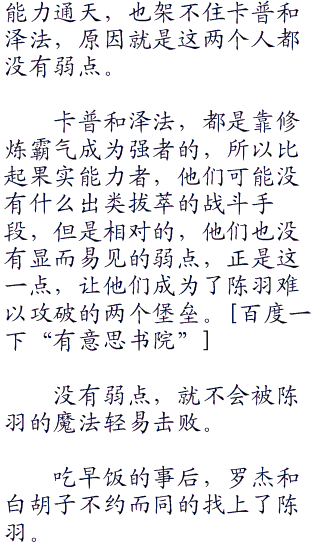 能力通天，也架不住卡普和
泽法，原因就是这两个人都
没有弱点。
卡普和泽法，都是靠修
炼霸气成为强者的，所以比
起果实能力者，他们可能没
有什么出类拔萃的战斗手
段，但是相对的，他们也没
有显而易见的弱点，正是这
一点，让他们成为了陈羽难
以攻破的两个堡垒。[百度一
下“有意思书院”]
没有弱点，就不会被陈
羽的魔法轻易击败。
吃早饭的事后，罗杰和
白胡子不约而同的找上了陈
羽。